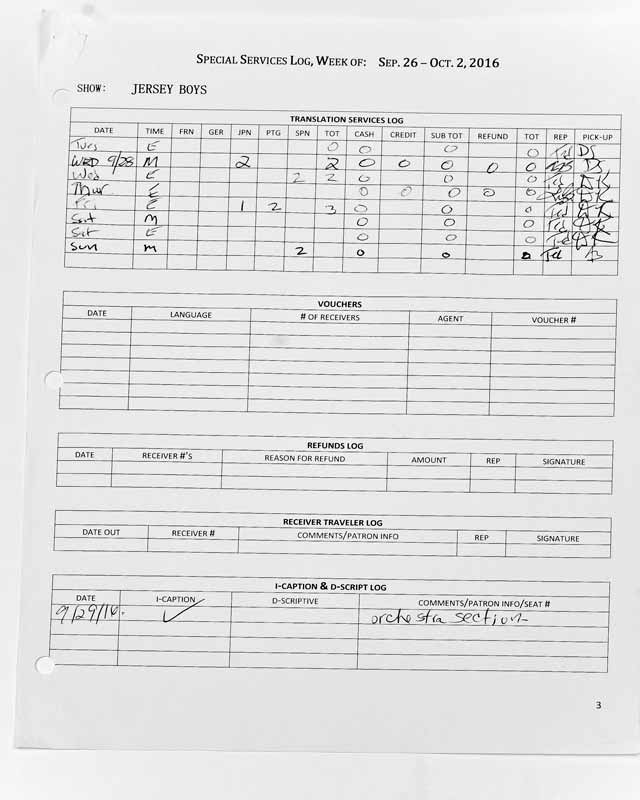 SPECIAL SERVICES LOG, WEEK OF: SEP. 26 – OCT. 2, 2016
SHOW: JERSEY BOYS
TRANSLATION SERVICES LOG
DATE TIME FRN GER JPN PTG SPN TOT CASH CREDIT SUB TOT REFUND TOT REP PICK-UP
Tues E 0 0 0 0 Ted DS
WED 9/28 M 2 2 0 0 0 0 0
Wed E 2 2 0 0 0 Ted
Thur E 0 0 0 0 0
Fri E 1 2 3 0 0 0 Ted
Sat M 0 0 0 Ted
Sat E 0 0 0 Ted
Sun M 2 0 0 0 Ted
VOUCHERS
DATE LANGUAGE # OF RECEIVERS AGENT VOUCHER #
REFUNDS LOG
DATE RECEIVER #'S REASON FOR REFUND AMOUNT REP SIGNATURE
RECEIVER TRAVELER LOG
DATE OUT RECEIVER # COMMENTS/PATRON INFO REP SIGNATURE
I-CAPTION & D-SCRIPT LOG
DATE I-CAPTION D-SCRIPTIVE COMMENTS/PATRON INFO/SEAT #
9/29/16. ✓ orchestra section
3